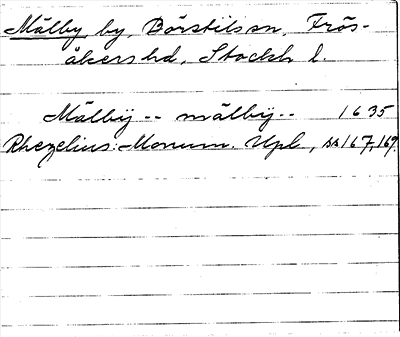 Mälby by, Börstils sn, Frös-
åkers hd, Stockh l.
Mälbÿ -- mälbÿ -- 1635
Rhezelius: Monum. Upl, ss 167, 169.